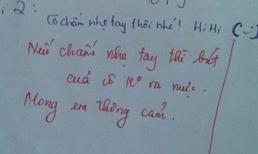 2:
Cô chấm nhẹ tay thôi nhé! HiHi (-:
Nếu chấm nhẹ tay thì bút
của cô k° ra mực.
Mong em thông cảm.